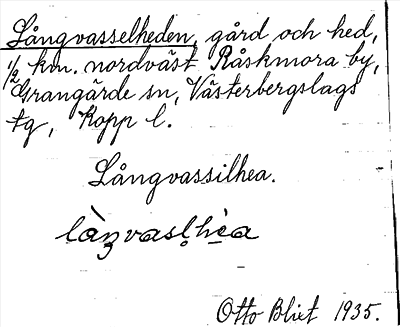 Långvasselheden, gård och hed,
1/2 km. nordväst Råskmora by,
Grangärde sn, Västerbergslags
tg, Kopp l.
Långvassilhea.
làŋvasl̥hè̱a
Otto Blixt 1935.